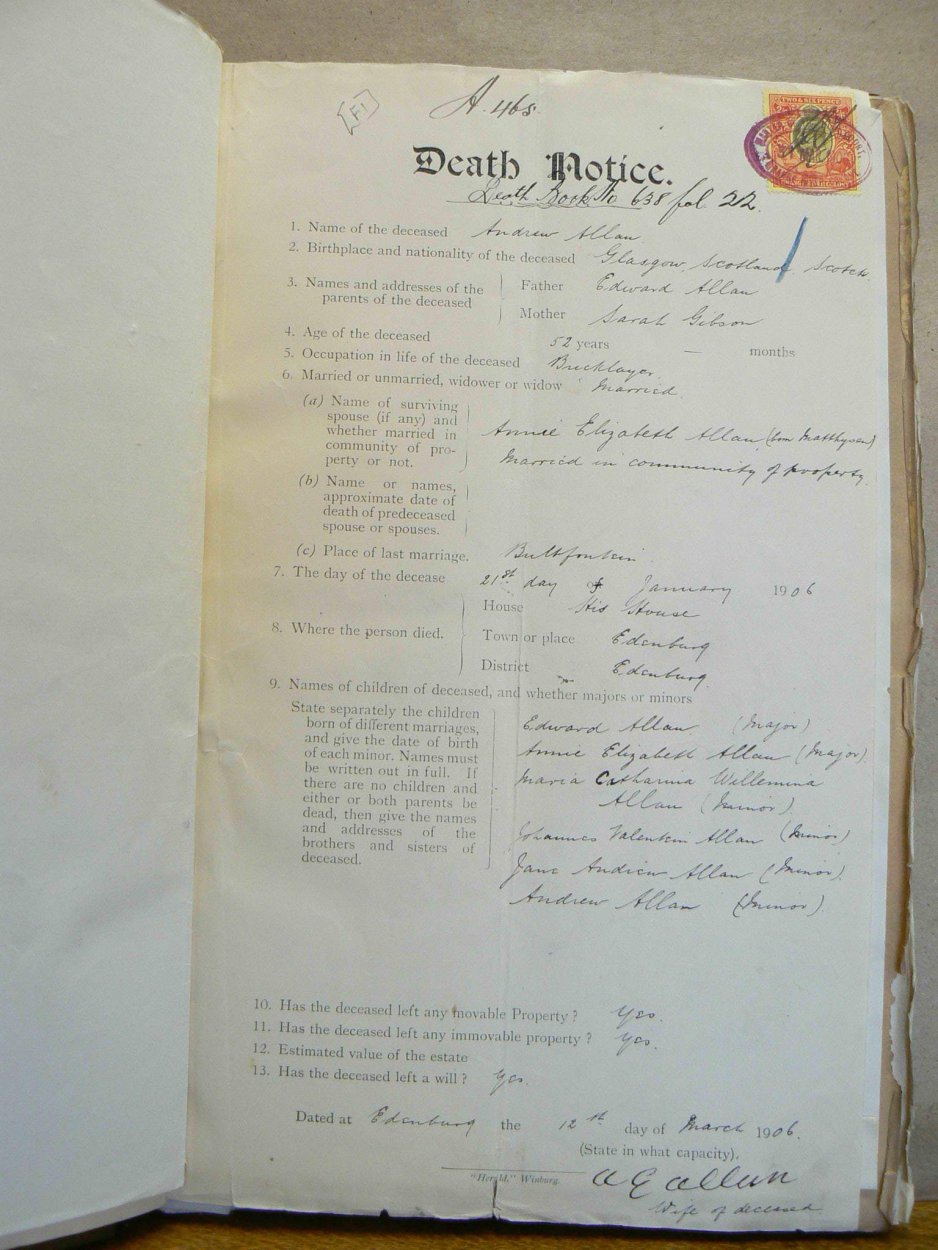 F1
A. 465
TWO & SIX PENCE
Death Notice.
Death Book No 638 fol 22.
1. Name of the deceased Andrew Allan
2. Birthplace and nationality of the deceased Glasgow Scotland Scotch
3. Names and addresses of the parents of the deceased
Father Edward Allan
Mother Sarah Gibson
4. Age of the deceased 52 years — months
5. Occupation in life of the deceased Bricklayer
6. Married or unmarried, widower or widow Married.
(a) Name of surviving
spouse (if any) and
whether married in
community of pro-
perty or not.
Annie Elizabeth Allan (born Matthysen)
Married in community of property.
(b) Name or names,
approximate date of
death of predeceased
spouse or spouses.
(c) Place of last marriage. Bultfontein
7. The day of the decease 21st day of January 1906
8. Where the person died.
House His House
Town or place Edenburg
District Edenburg.
9. Names of children of deceased, and whether majors or minors
State separately the children
born of different marriages,
and give the date of birth
of each minor. Names must
be written out in full. If
there are no children and
either or both parents be
dead, then give the names
and addresses of the
brothers and sisters of
deceased.
Edward Allan (Major)
Annie Elizabeth Allan (Major)
Maria Catharina Willemina
Allan (Minor)
Johannes Valentin Allan (Minor)
Jane Andrew Allan (Minor)
Andrew Allan (Minor)
10. Has the deceased left any movable Property? Yes.
11. Has the deceased left any immovable property? Yes.
12. Estimated value of the estate
13. Has the deceased left a will? Yes.
Dated at Edenburg the 12st day of March 1906.
(State in what capacity).
"Herald," Winburg.
A E Allan
Wife of deceased